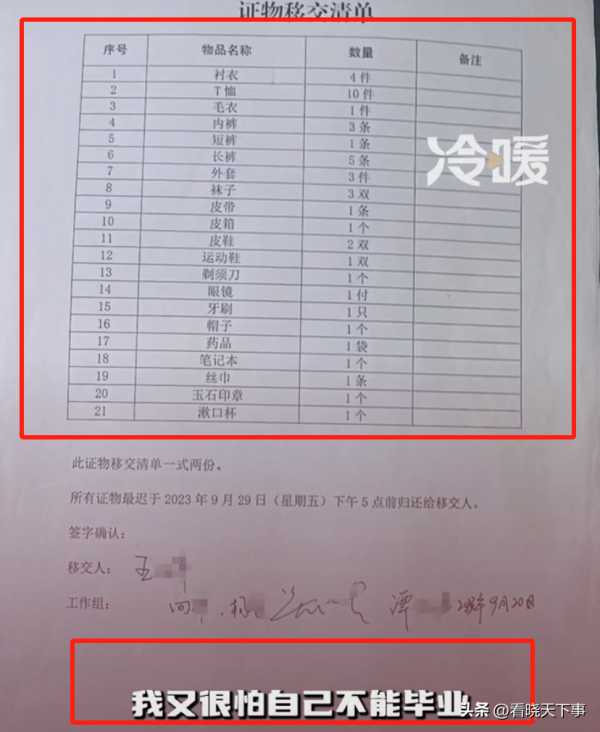 证物移交清单
序号 物品名称 数量 备注
1 衬衣 4件
2 T恤 10件
3 毛衣 1件
4 内裤 3条
5 短裤 1条
6 长裤 5条
7 外套 3件
8 袜子 3双
9 皮带 1条
10 皮箱 1个
11 皮鞋 2双
12 运动鞋 1双
13 剃须刀 1个
14 眼镜 1付
15 牙刷 1只
16 帽子 1个
17 药品 1袋
18 笔记本 1个
19 丝巾 1条
20 玉石印章 1个
21 漱口杯 1个
冷暖
此证物移交清单一式两份。
所有证物最迟于2023年9月29日（星期五）下午5点前归还给移交人。
签字确认：
移交人：王
工作组：向 杨 谭 9月20日
我又很怕自己不能毕业
头条@看晓天下事